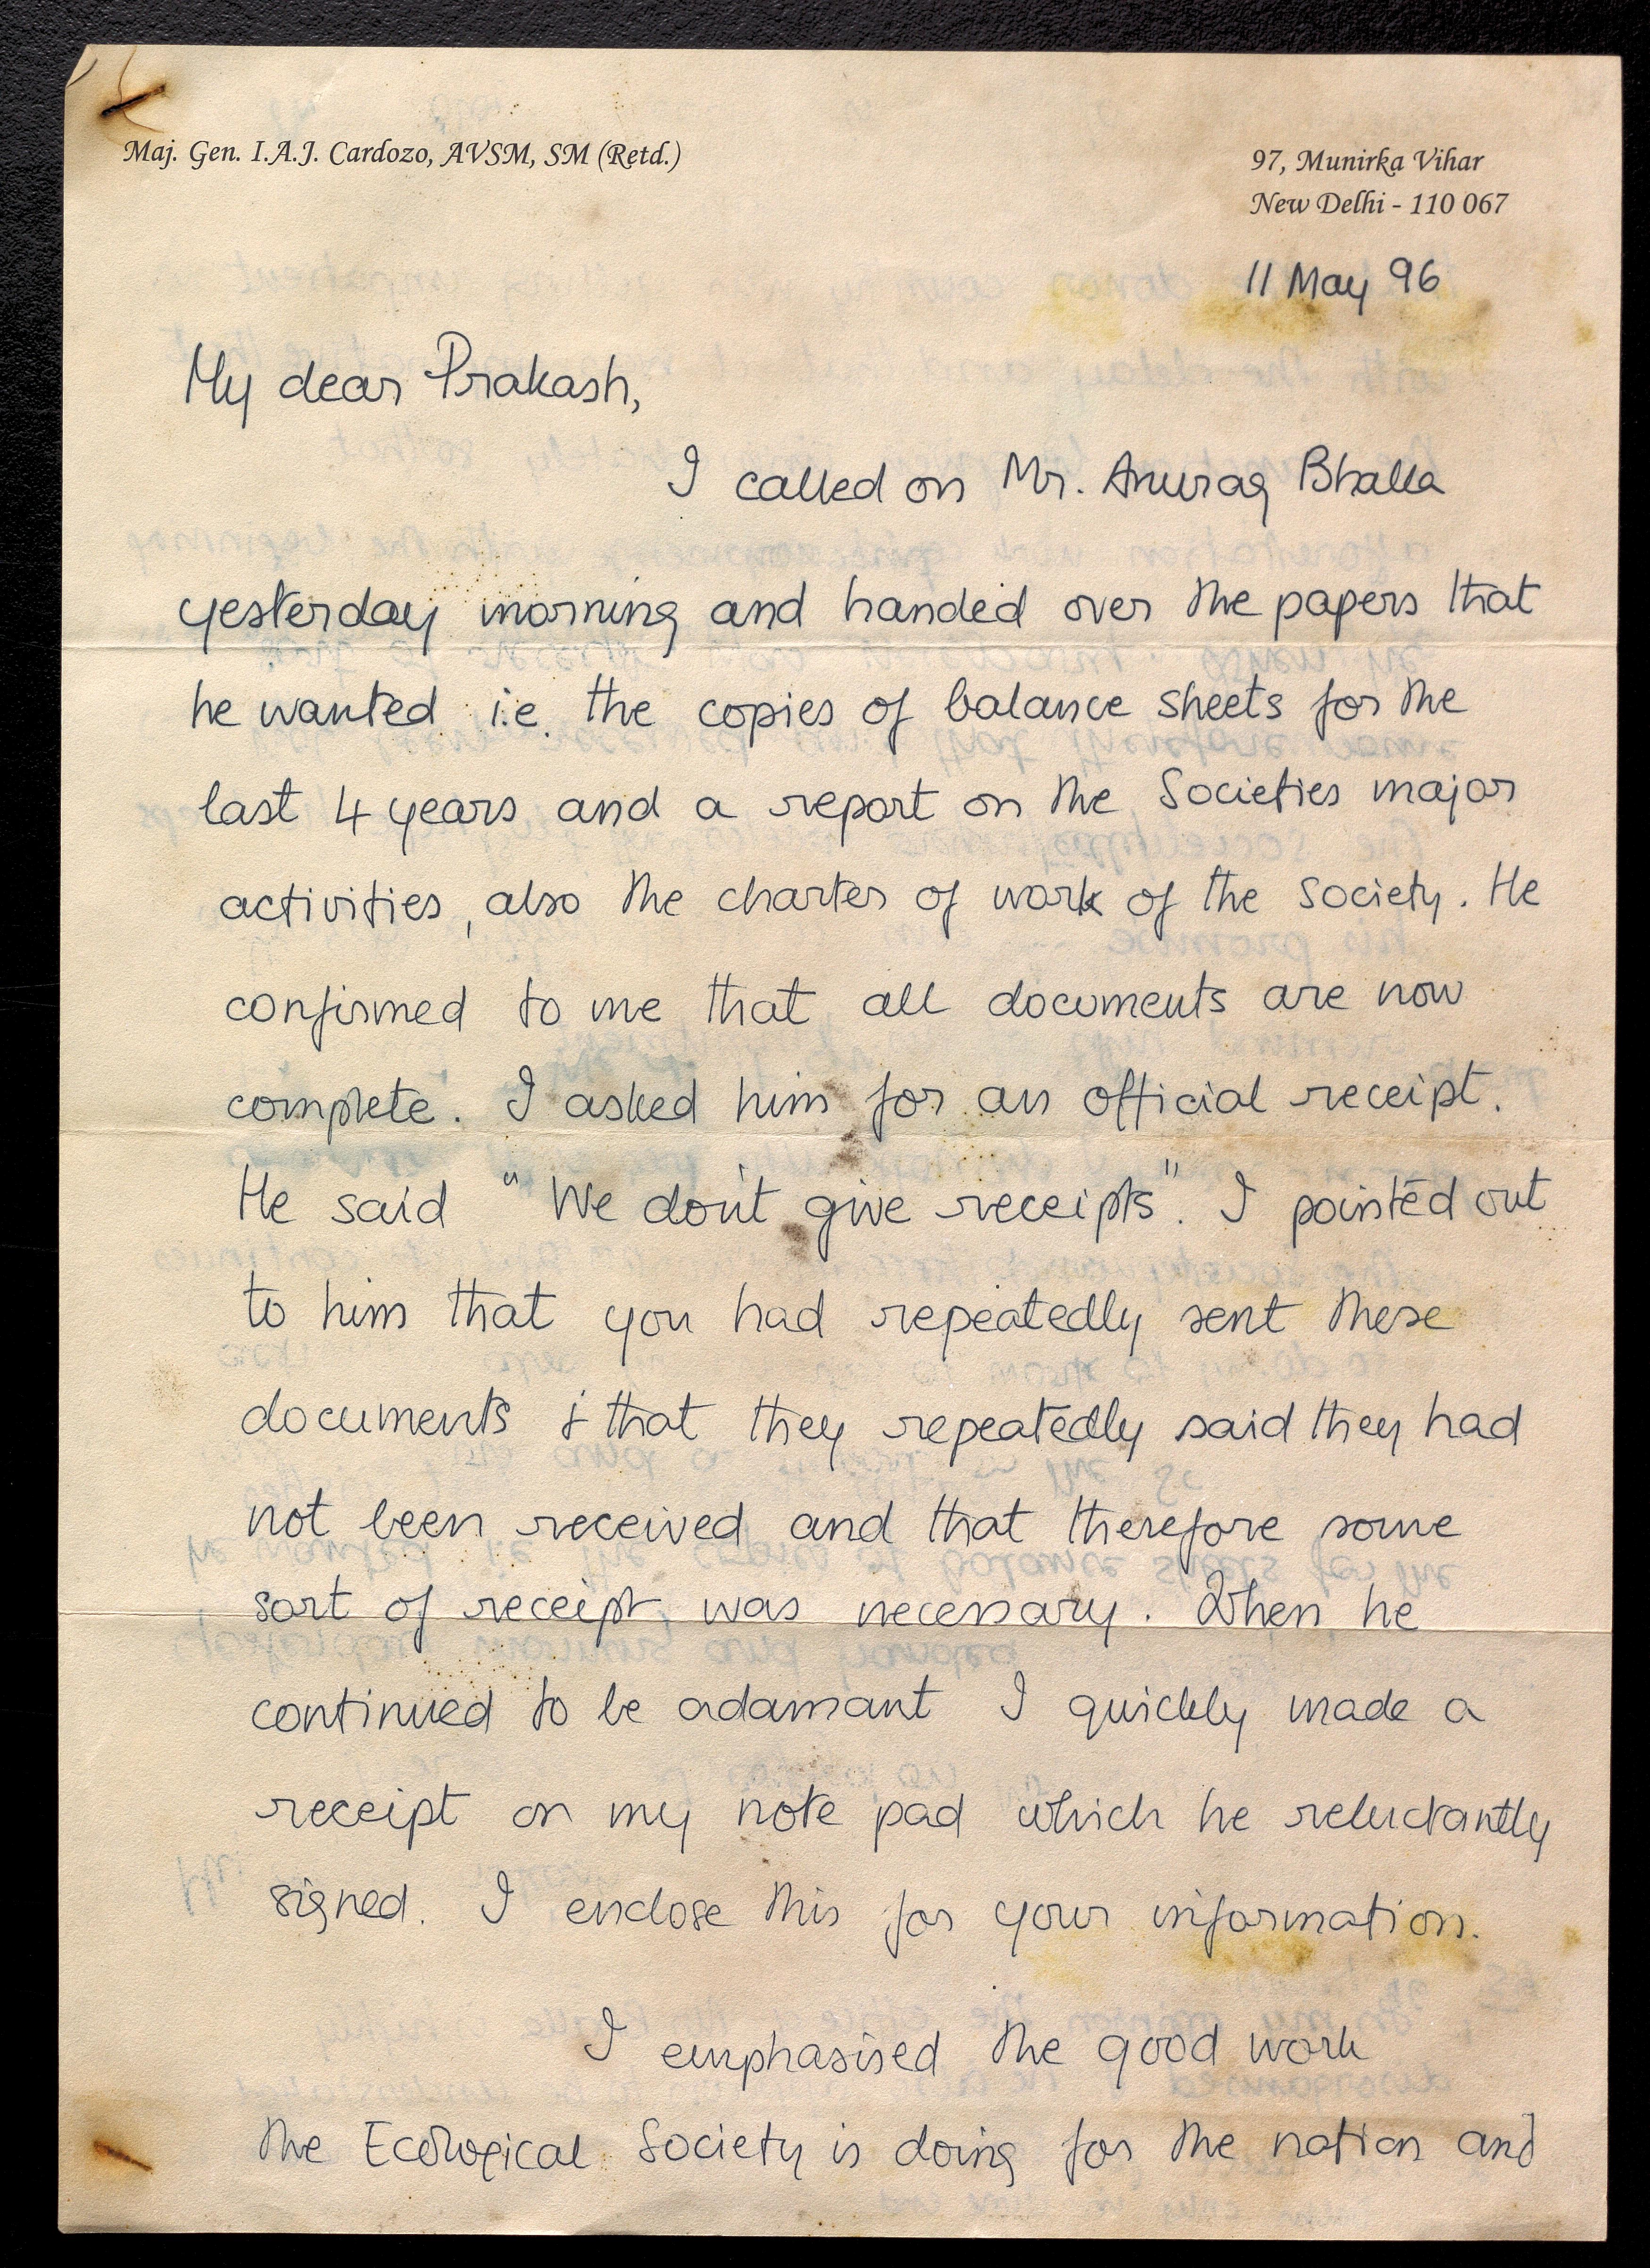 Maj. Gen. I.A.J. Cardozo, AVSM, SM (Retd.)
97, Munirka Vihar
New Delhi - 110 067
11 May 96
My dear Prakash,
I called on Mr. Anurag Bhalla
yesterday morning and handed over the papers that
he wanted i.e. the copies of balance sheets for the
last 4 years and a report on the Societies major
activities, also the charter of work of the Society. He
confirmed to me that all documents are now
complete. I asked him for an official receipt.
He said "We don't give receipts". I pointed out
to him that you had repeatedly sent these
documents & that they repeatedly said they had
not been received and that therefore some
sort of receipt was necessary. When he
continued to be adamant I quickly made a
receipt on my note pad which he reluctantly
signed. I enclose this for your information.
I emphasised the good work
the Ecological Society is doing for the nation and